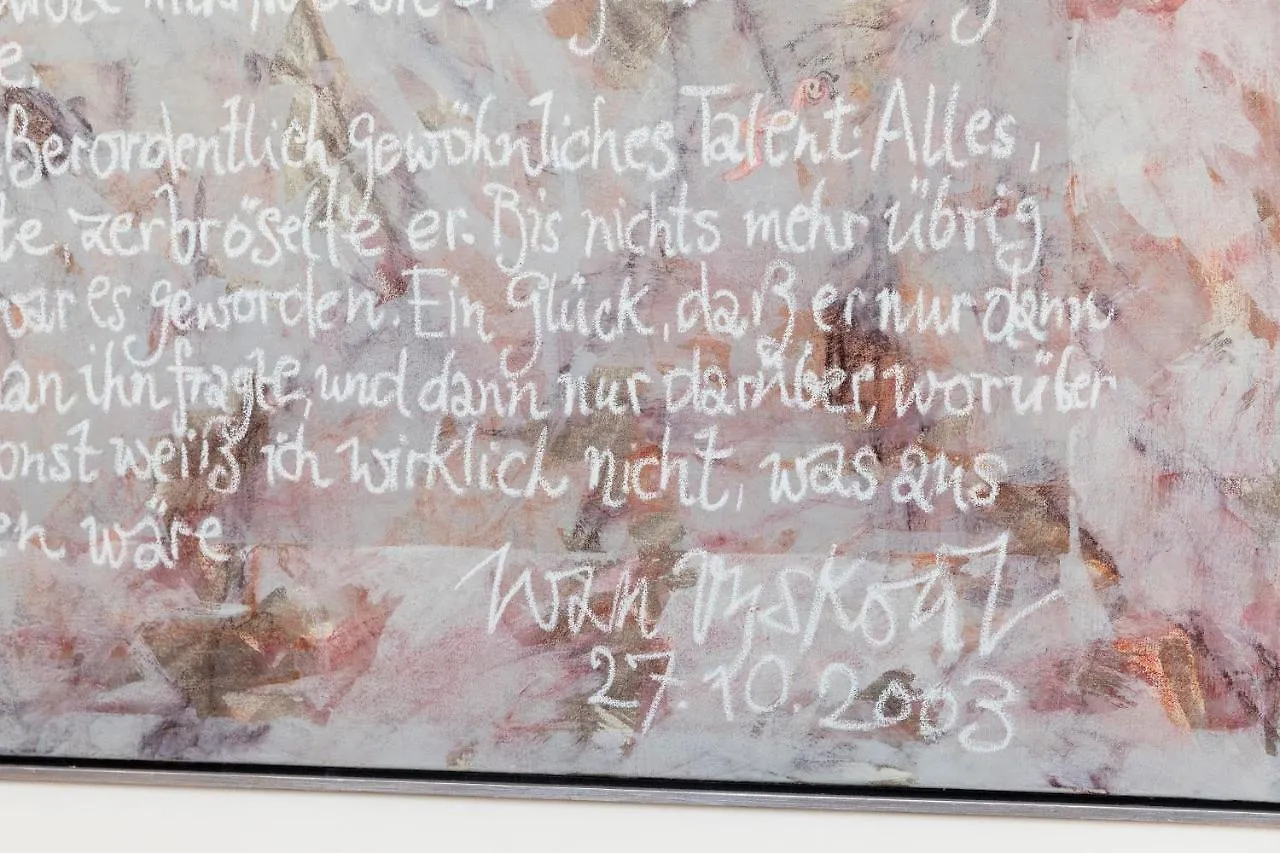 e.
ßerordentlich gewöhnliches Talent. Alles,
te, zerbröselte er. Bis nichts mehr übrig
war es geworden. Ein Glück, daß er nur dann
an ihn fragte, und dann nur darüber, worüber
onst weiß ich wirklich nicht, was aus
en wäre
27.10.2003